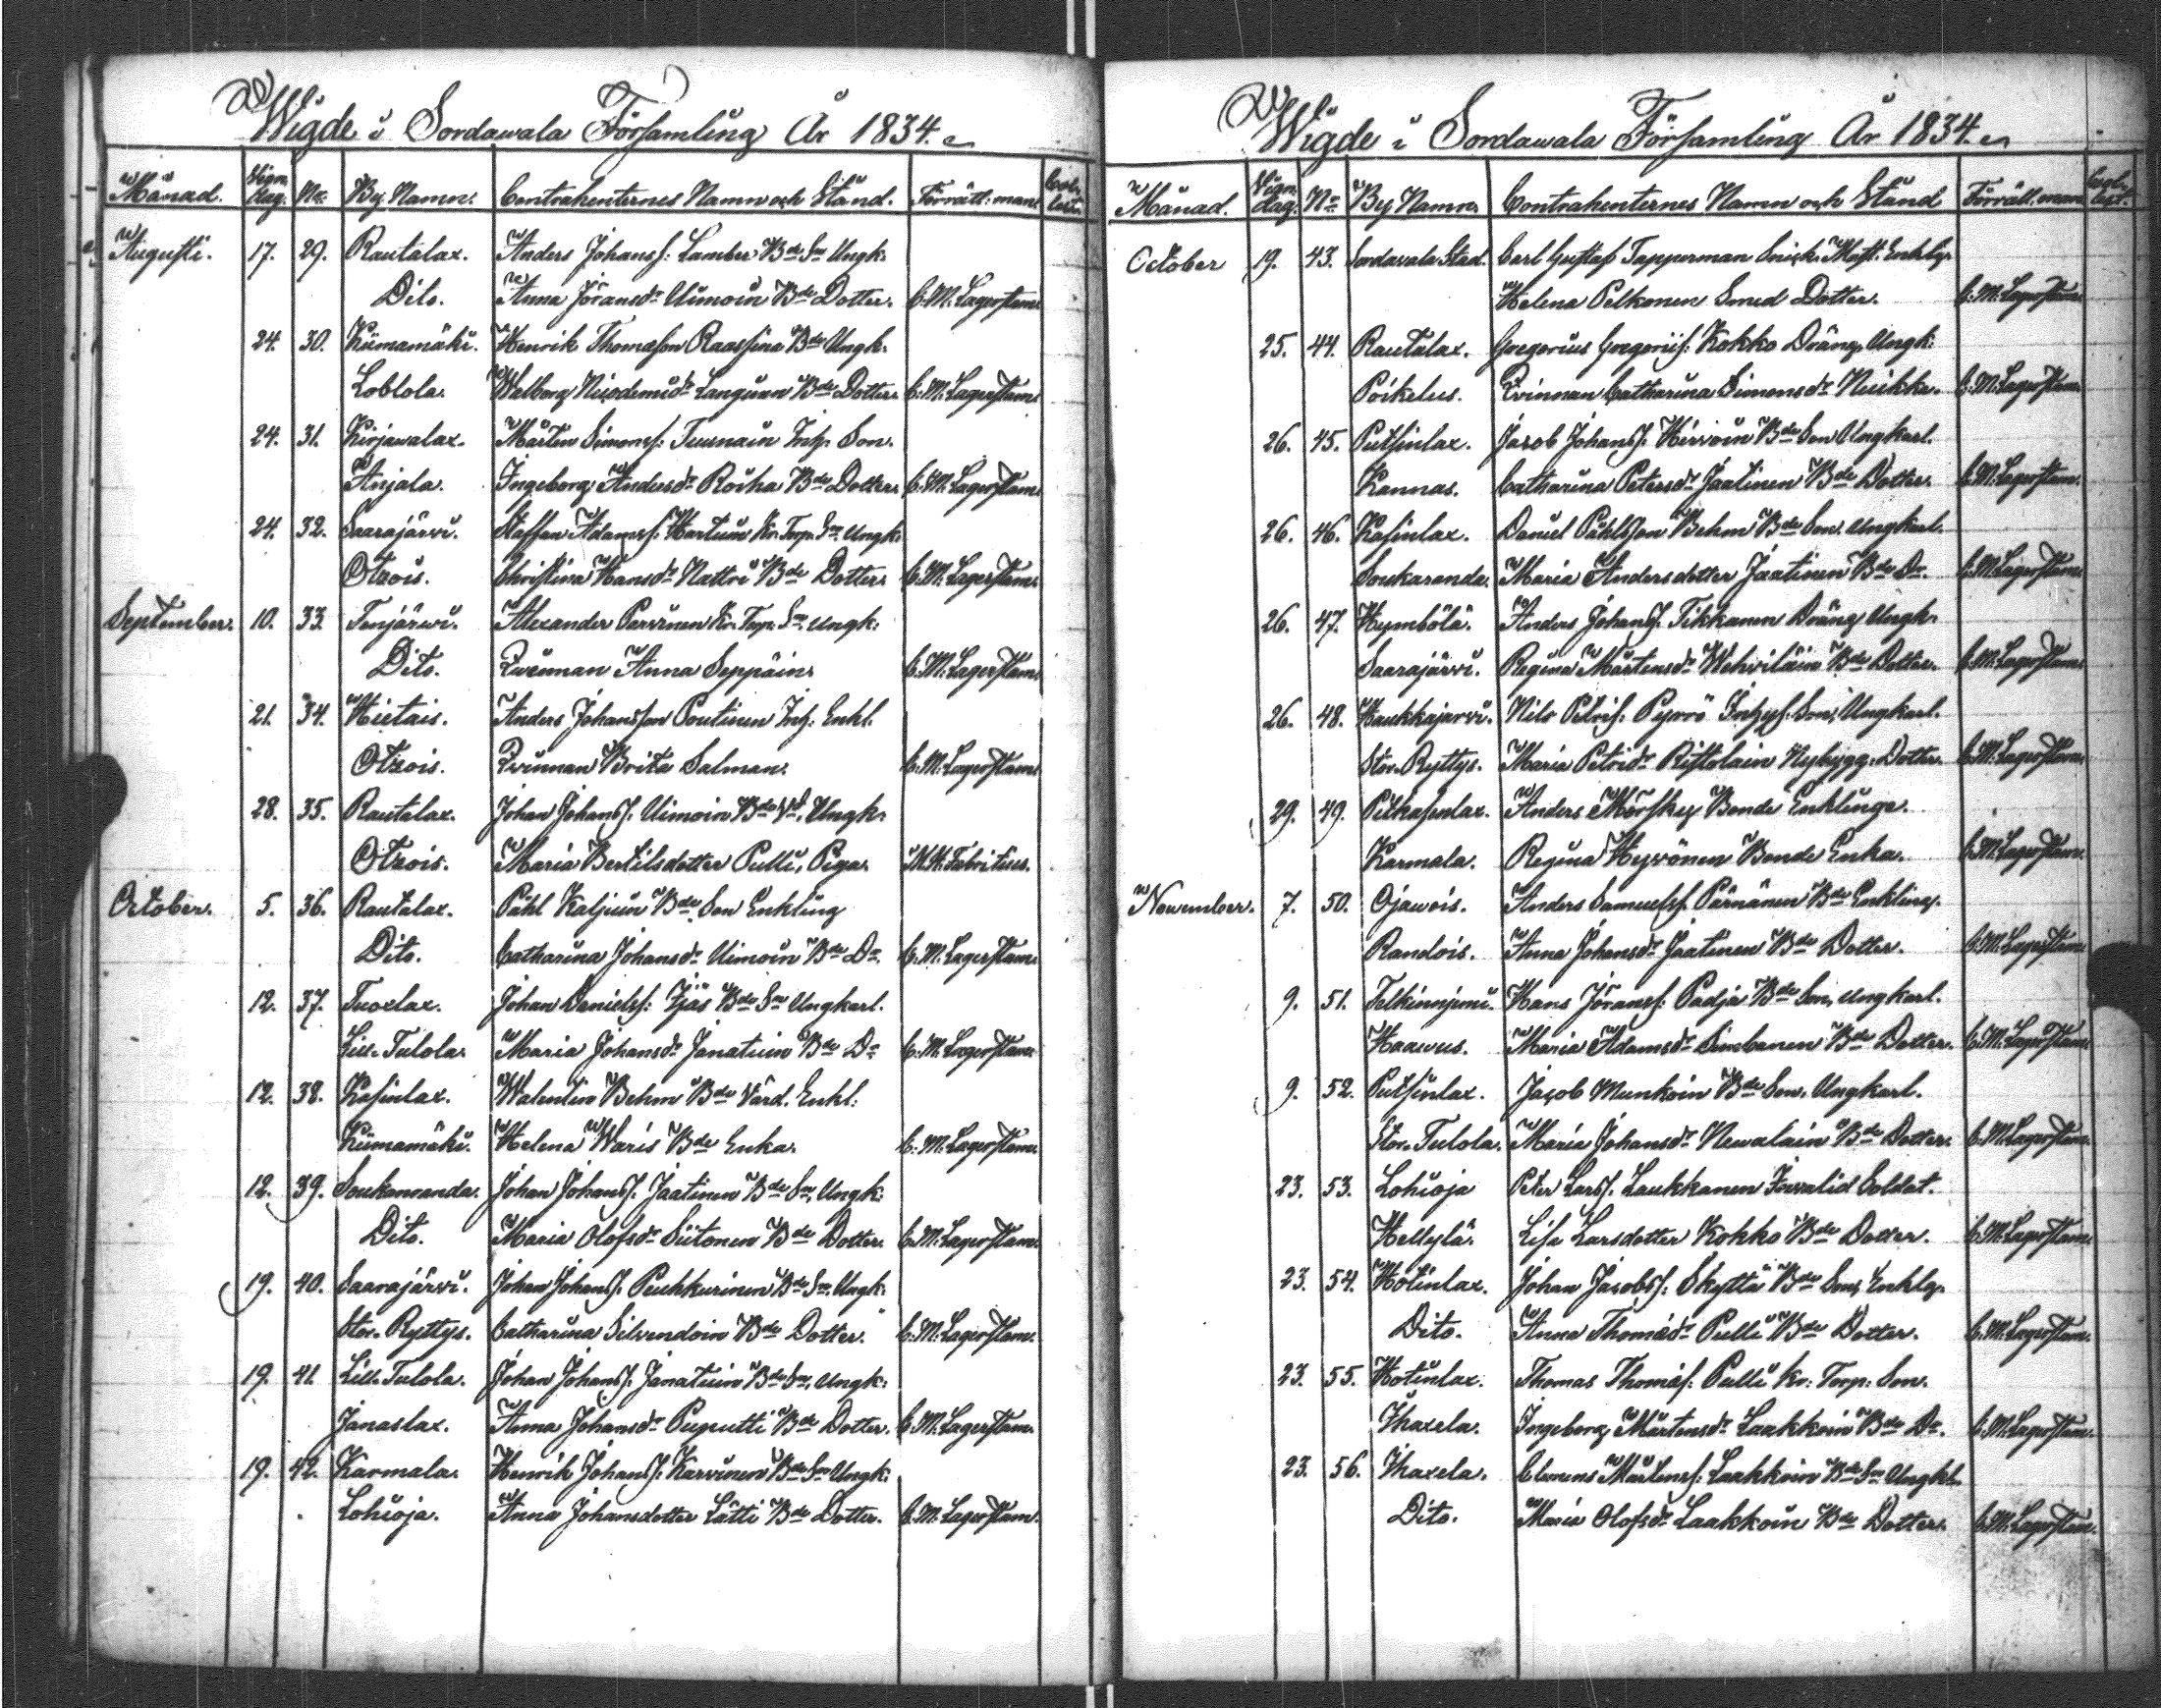 Wigde i Sordawala Församling År 1834.
Månad. Vign. dag. No. By Namn. Contrahenternes Namn och Stånd. Förrätt: man. Coll. lect.
Augusti. 17. 29. Rautalax. Anders Johansf: Lamber Bde Sn Ungk.
Dito. Anna Jöransdr Uimoin Bde Dotter. C. M. Lagerstam.
24. 30. Kiimamäki. Henrik Thomasson Raassina Bde Ungk.
Loblola. Walborg Nicodemidr Languen Bde Dotter. C. M. Lagerstam.
24. 31. Kirjawalax. Mårten Simonsf: Tuunain Inh. Son.
Anjala. Ingeborg Andersdr Roiha Bde Dotter. C. M. Lagerstam.
24. 32. Saarajärvi. Staffan Adamsf. Hartuin Kr. Torp. Sn. Ungk.
Otzois. Christina Hansdr Nattri Bde Dotter. C. M. Lagerstam.
September. 10. 33. Tenjärwi. Alexander Parvinen Kr. Torp. Sn. Ungk.
Dito. Qvinnan Anna Seppäin. C. M. Lagerstam.
21. 34. Hietais. Anders Johansson Poutinen Inh: Enkl.
Otzois. Qvinnan Brita Salman. C. M. Lagerstam.
28. 35. Rautalax. Johan Johansf. Uimoin Bde Vd, Ungk.
Otzois. Maria Bertilsdotter Pulli, Piga. Fabritius.
October. 5. 36. Rautalax. Påhl Kaljuin Bde Son Enkling
Dito. Catharina Johansdr Uimoin Bde Dr. C. M. Lagerstam.
12. 37. Tuoxlax. Johan Danielsf: Ijäs Bde Sn Ungkarl.
Lill. Tulola. Maria Johansdr Janatuin Bde Dr C. M. Lagerstam.
12. 38. Kosinlax. Walentin Behm Bde Värd. Enkl:
Kiimamäki. Helena Waris Bde Enka. C. M. Lagerstam.
12. 39. Soukanranda. Johan Johansf. Jaatinen Bde Sn, Ungk.
Dito. Maria Olofsdr Siitonen Bde Dotter. C. M. Lagerstam.
19. 40. Saarajärvi. Johan Johansf. Peuhkurinen Bde Sn. Ungk.
Stor. Ryttys. Catharina Silvendoin Bde Dotter. C. M. Lagerstam.
19. 41. Lill. Tulola. Johan Johansf. Janatuin Bde Sn, Ungk.
Janaslax. Anna Johansdr Pugiutti Bde Dotter. C. M. Lagerstam.
19. 42. Karmala. Henrik Johansf. Karvinen Bde Sn Ungk.
Lohioja. Anna Johansdotter Lätti Bde Dotter. C. M. Lagerstam.
Wigde i Sordawala Församling År 1834.
Månad. Vign. dag. No. By Namn. Contrahenternes Namn och Stånd Förrätt. man. Coll. lect.
October 19. 43. Sordavala Stad. Carl Gustaf Tapperman Snick. Mäst. Enklg.
Helena Pelkonen Smed Dotter. C. M. Lagerstam.
25. 44. Rautalax. Gregorius Gregoriif: Kokko Dräng, Ungk:
Poikelus. Qvinnan Catharina Simonsdr Nuikka. C. M. Lagerstam.
26. 45. Putsinlax. Jacob Johansf. Hirvoin Bde Son Ungkarl.
Kannas. Catharina Petersdr Jaatinen Bde Dotter. C. M. Lagerstam.
26. 46. Kosinlax. Daniel Påhlsson Behm Bde Son. Ungkarl.
Soukaranda. Maria Andersdotter Jaatinen Bde Dr. C. M. Lagerstam.
26. 47. Hymbölä. Anders Johansf. Tikkanen Dräng Ungk.
Saarajärvi. Regina Mårtensdr Wehviläin Bde Dotter. C. M. Lagerstam.
26. 48. Haukkajärvi. Nils Petrif. Pyrrö Inhysf. Son, Ungkarl.
Stor. Ryttys. Maria Petridr Ristolain Nybygg. Dotter. C. M. Lagerstam.
29. 49. Pitkäsenlax. Anders Mörsky Bonde Enklinge.
Karmala. Regina Hyvönen Bonde Enka. C. M. Lagerstam.
November. 7. 50. Ojawois. Anders Samuelsf. Pärnänen Bde Enkling.
Randois. Anna Johansdr Jaatinen Bde Dotter. C. M. Lagerstam.
9. 51. Telkinnjemi. Hans Jöransf: Padja Bde Son, Ungkarl.
Haawus. Maria Adamsdr Bde Dotter. C. M. Lagerstam.
9. 52. Putsinlax. Jacob Munkoin Bde Son. Ungkarl.
Stor. Tulola. Maria Johansdr Newalain Bde Dotter. C. M. Lagerstam.
23. 53. Lohioja Peter Larsf. Laukkanen Invalid Soldat.
Hellylä. Lisa Larsdotter Kokko Bde Dotter. C. M. Lagerstam.
23. 54. Hotinlax. Johan Jacobsf: Skyttä Bde Son, Enklg.
Dito. Anna Thomædr Pulli Bde Dotter. C. M. Lagerstam.
23. 55. Hotinlax. Thomas Thomæf: Pulli Kr. Torp: Son.
Ihaxela. Ingeborg Mårtensdr Laakkoin Bde Dr. C. M. Lagerstam.
23. 56. Ihaxela. Clemens Mårtensf: Laakkoin Bde Sn Ungkl.
Dito. Maria Olofsdr Laakkoin Bde Dotter. C. M. Lagerstam.